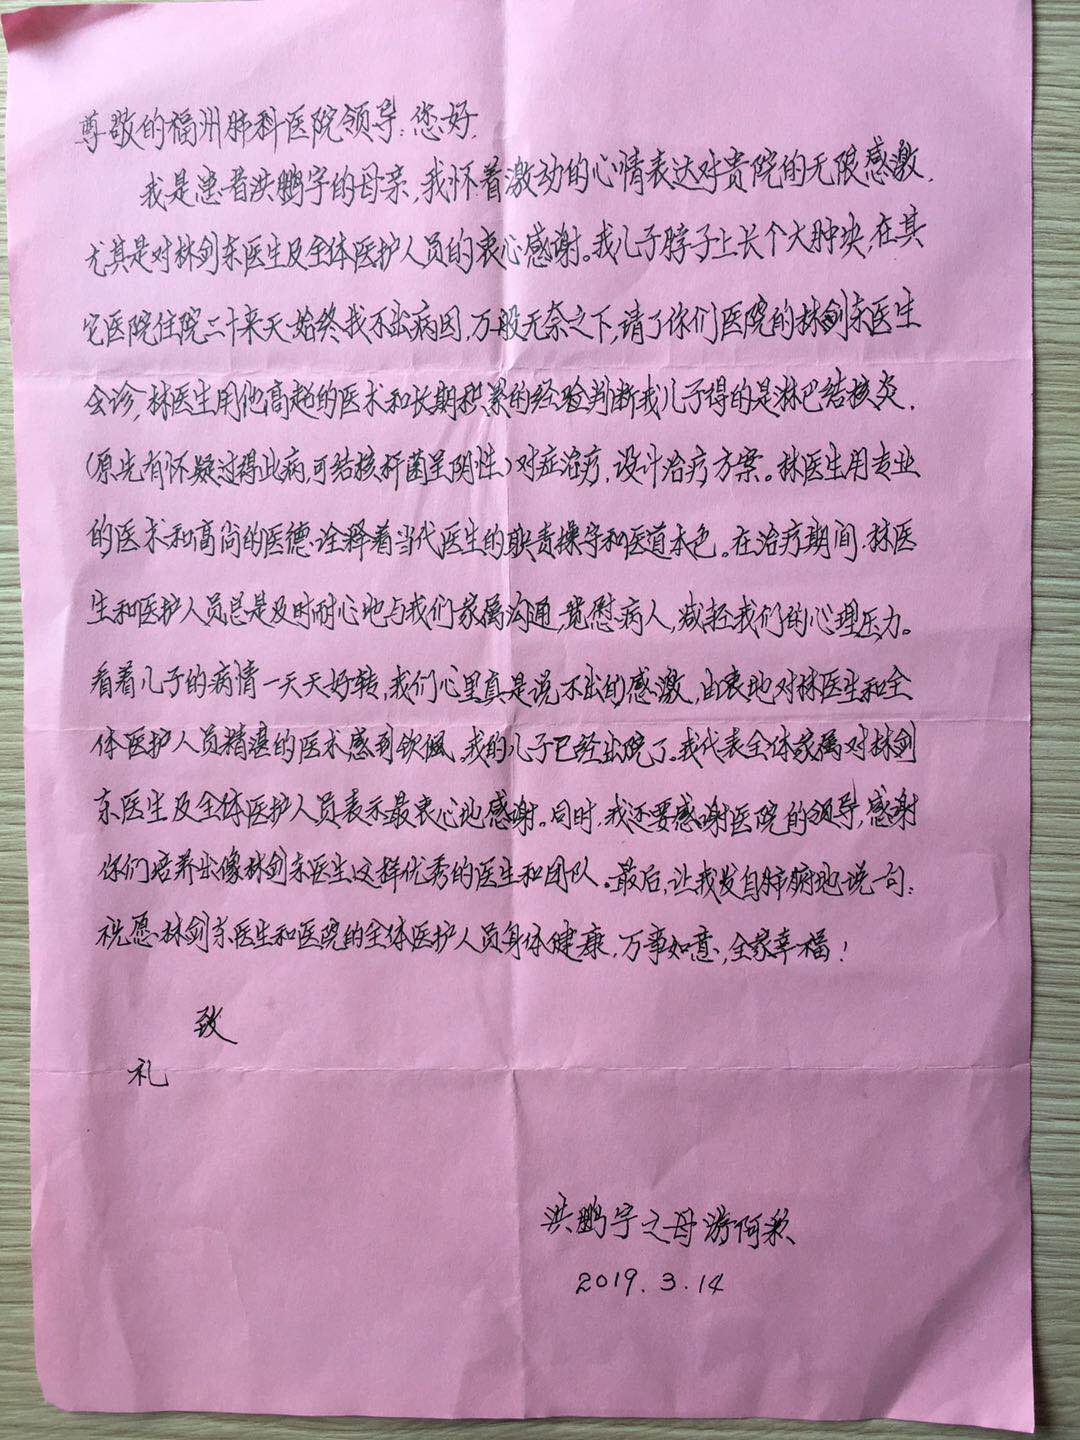 尊敬的福州肺科医院领导:您好.
我是患者洪鹏宇的母亲,我怀着激动的心情表达对贵院的无限感激.
尤其是对林剑东医生及全体医护人员的衷心感谢。我儿子脖子上长个大肿块,在其
它医院住院二十来天始终找不出病因,万般无奈之下,请了你们医院的林剑东医生
会诊,林医生用他高超的医术和长期积累的经验判断我儿子得的是淋巴结核炎.
(原先有怀疑过得此病,可结核杆菌呈阴性)对症治疗,设计治疗方案。林医生用专业
的医术和高尚的医德诠释着当代医生的职责操守和医道本色。在治疗期间,林医
生和医护人员总是及时耐心地与我们家属沟通,宽慰病人,减轻我们的心理压力。
看着儿子的病情一天天好转,我们心里真是说不出的感激,由衷地对林医生和全
体医护人员精湛的医术感到钦佩。我的儿子已经出院了。我代表全体家属对林剑
东医生及全体医护人员表示最衷心地感谢。同时,我还要感谢医院的领导,感谢
你们培养出像林剑东医生这样优秀的医生和团队。最后,让我发自肺腑地说一句:
祝愿林剑东医生和医院的全体医护人员身体健康,万事如意,全家幸福!
致
礼
洪鹏宇之母游阿
2019.3.14